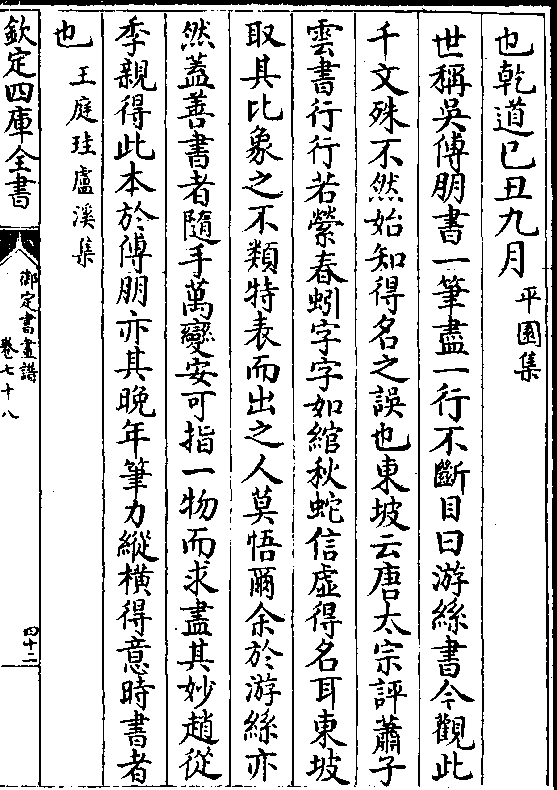 也乾道已丑九月平園集
世稱吳傅朋書一筆盡一行不斷目曰游絲書今觀此
千文殊不然始知得名之誤也東坡云唐太宗評蕭子
雲書行行若縈春蚓字字如綰秋蛇信虛得名耳東坡
取其比象之不類特表而出之人莫悟爾余於游絲亦
然蓋善書者隨手萬變安可指一物而求盡其妙趙從
季親得此本於傅朋亦其晚年筆力縱橫得意時書者
也王庭珪盧溪集
欽定四庫全書
御定書畫譜
卷七十八
四十二